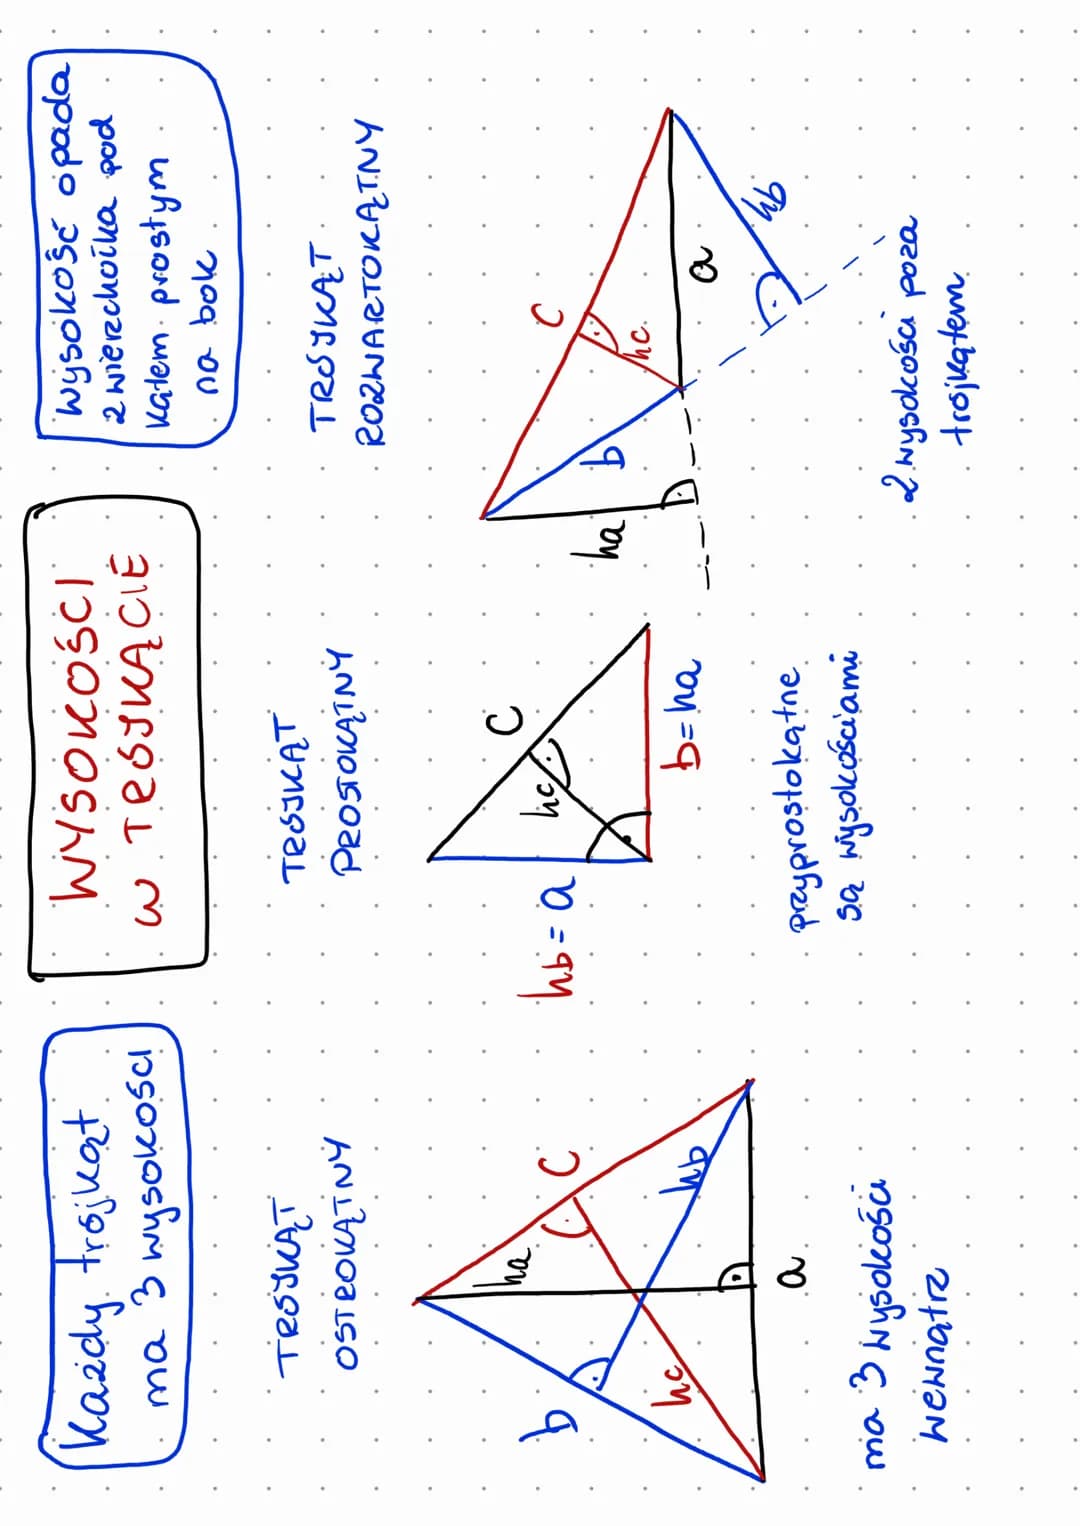 Każdy trójkąt
ma 3 wysokości
WYSOKOŚCI
W TRÓJKĄCIE
Wysokość opada
z wierzchołka pod
kątem prostym
na bok
TRÓJKĄT
OSTROKĄTNY
ha
C
b
hb
hc
a
ma 3 wysokości
wewnątrz
TRÓJKĄT
PROSTOKĄTNY
C
hc
hb = a
b = ha
przyprostokątne
są wysokościami
TRÓJKĄT
ROZWARTOKĄTNY
C
hc
b
ha
a
hb
2 wysokości poza
trójkątem